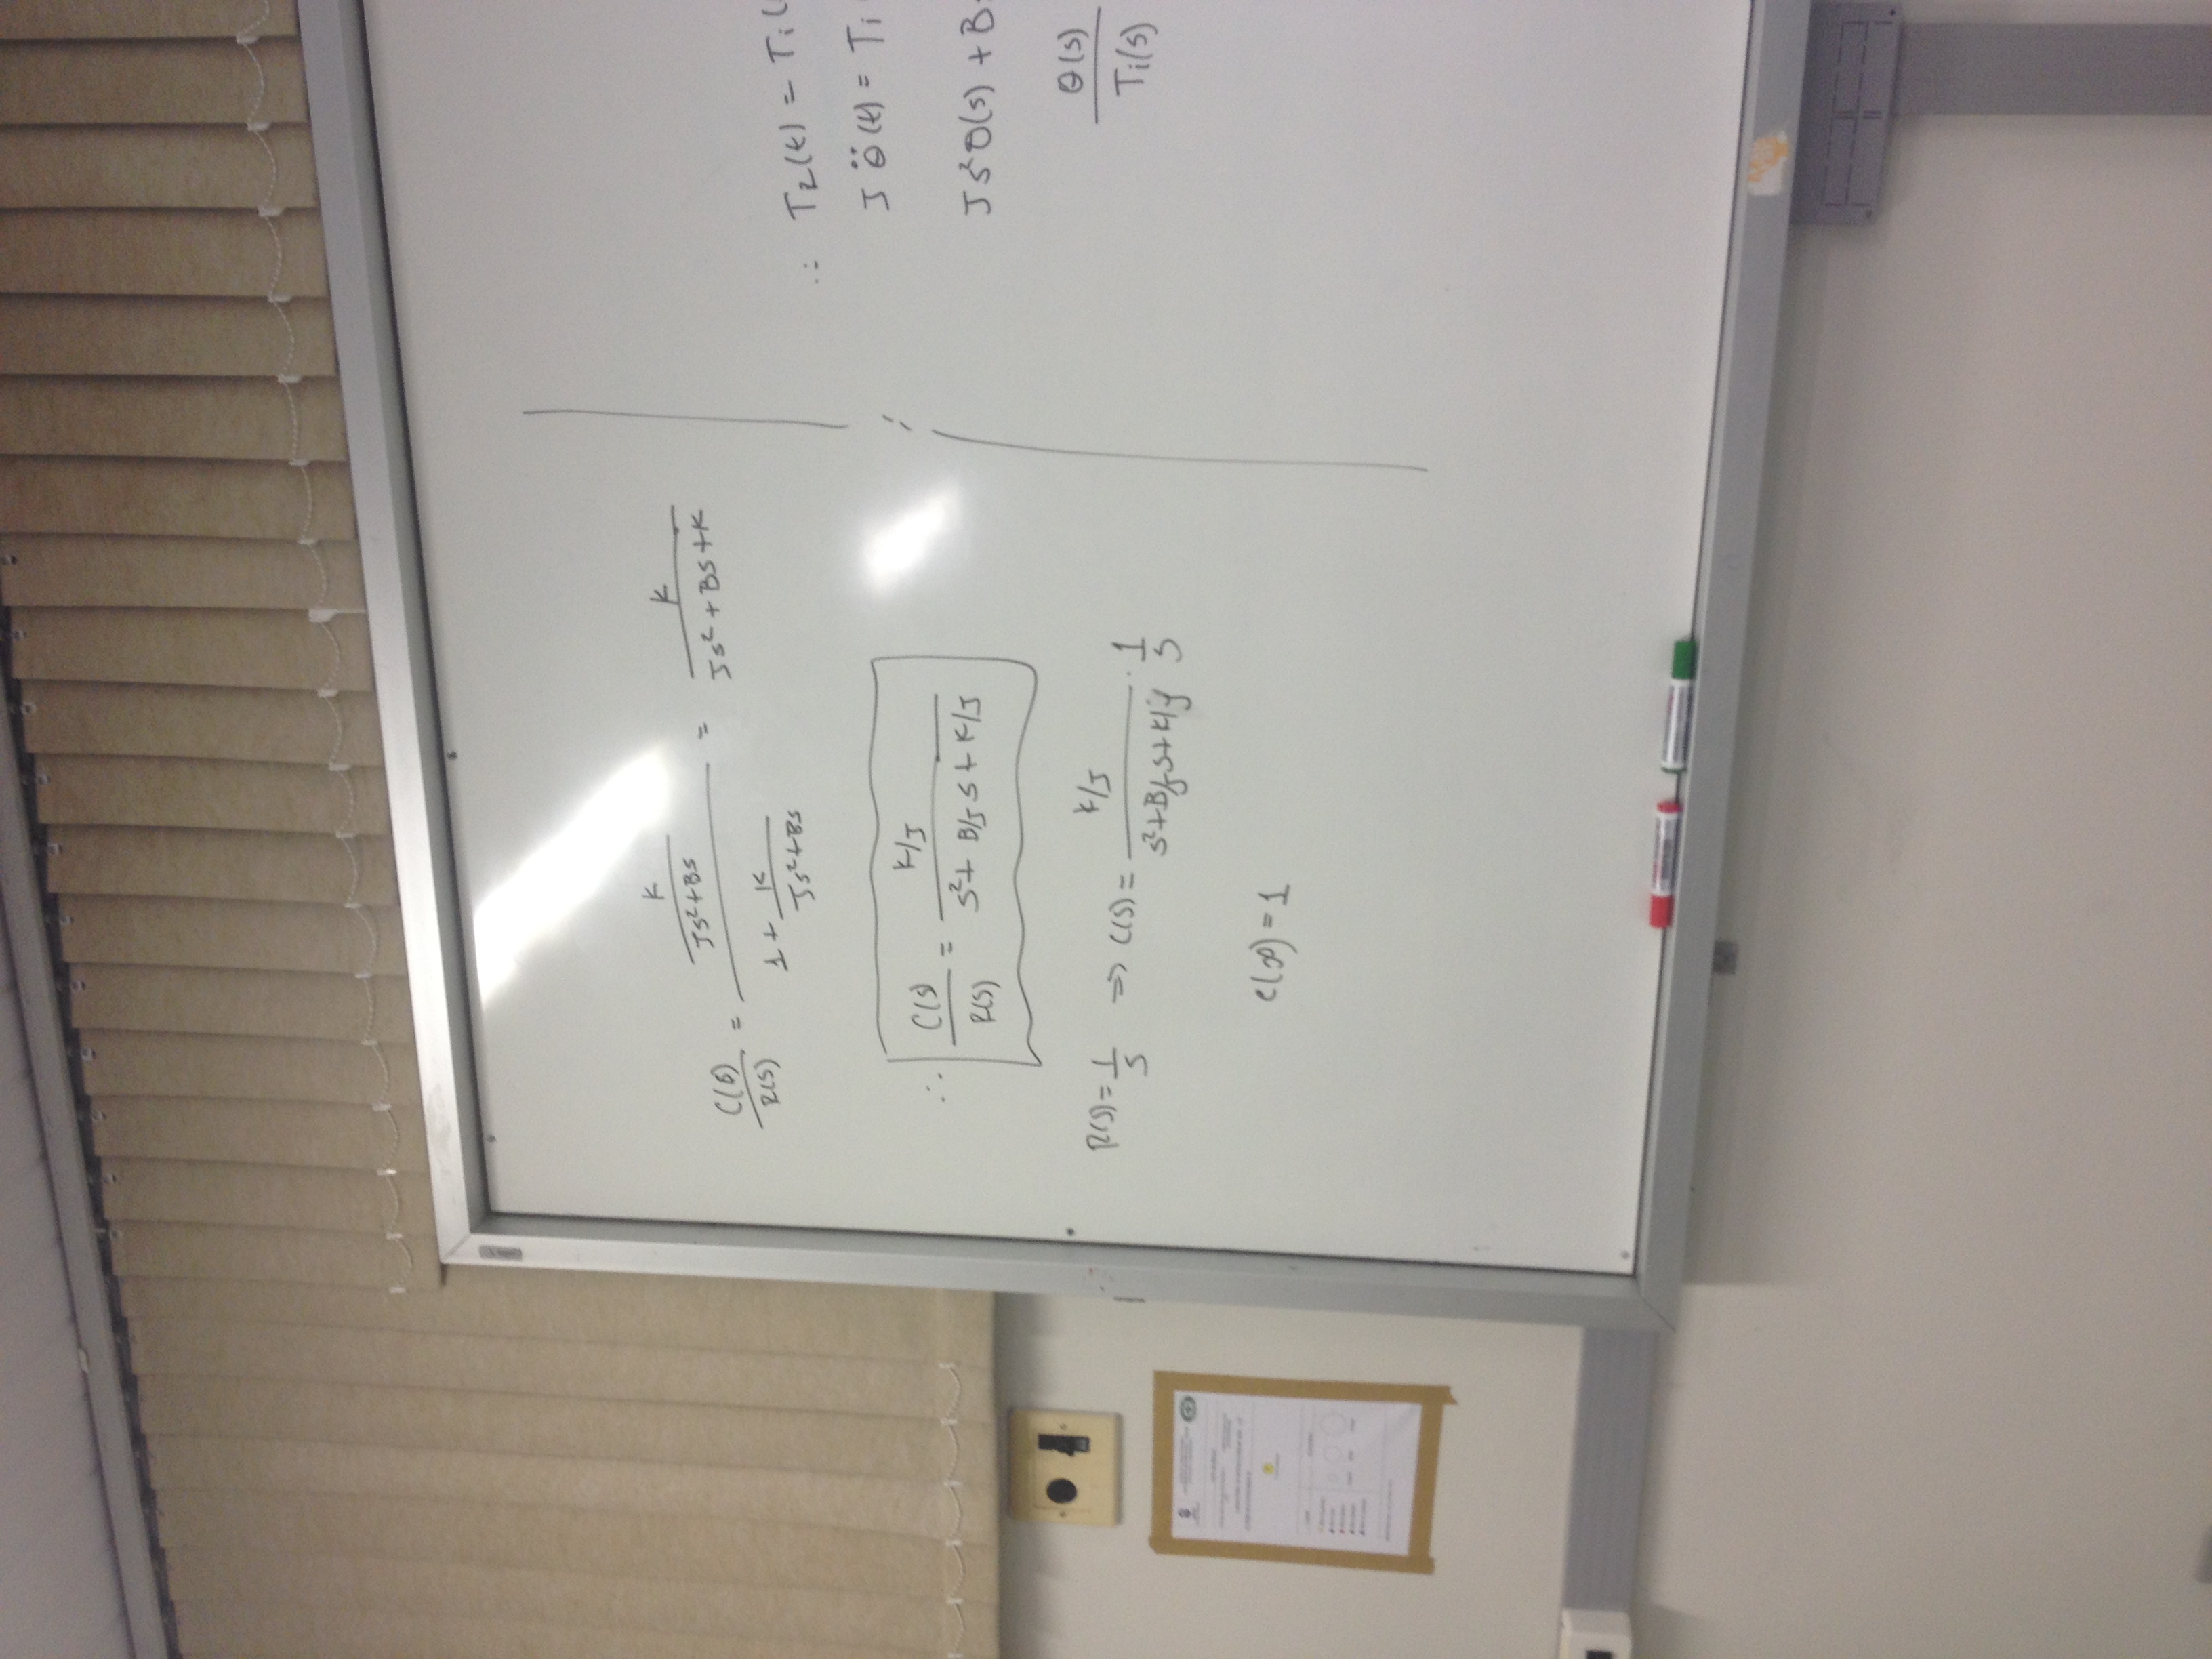 C(s)/R(s) = (K/(Js²+Bs))/(1+K/(Js²+Bs)) = K/(Js²+Bs+K)
∴ C(s)/R(s) = (K/J)/(s²+B/J s+K/J)
R(s)=1/s ⇒ C(s)= (K/J)/(s²+B/J s+K/J) · 1/s
c(∞)=1
∴ T_R(t) = Ti(
J θ̈(t) = Ti
Js²θ(s) + B
θ(s)
Ti(s)